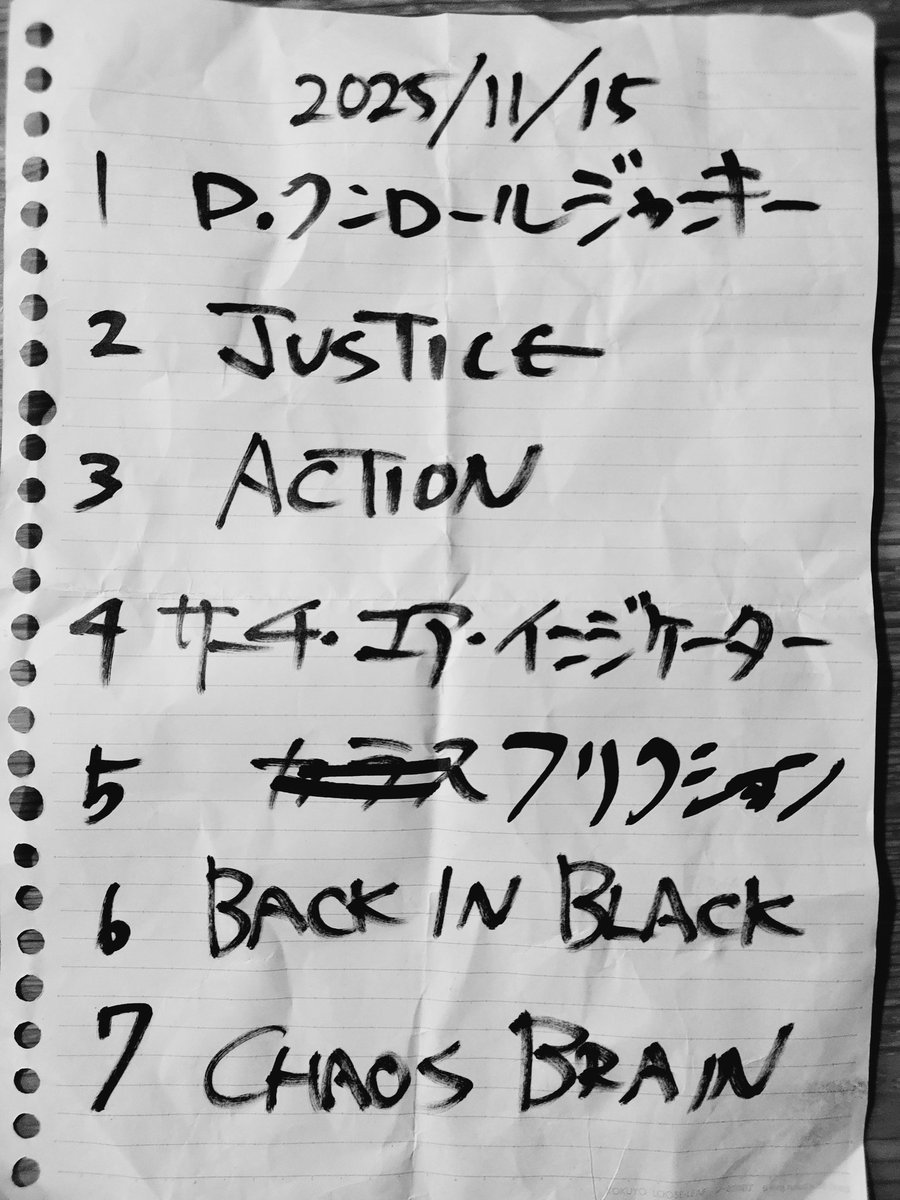 2025/11/15
1 ロ.クンロールジャンキー
2 JUSTICE
3 ACTION
4 サーチ・エア・インジケーター
5 カラス フリクション
6 BACK IN BLACK
7 CHAOS BRAIN